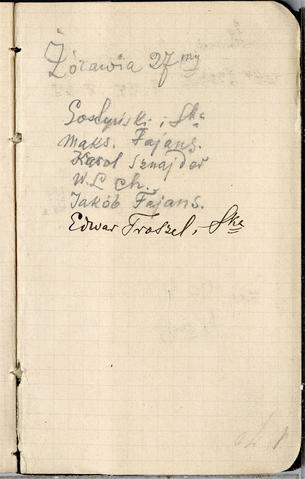 Żórawia 27 my
Gostyński i Ska
Maks. Fajans.
Karol Sznajder
W. L. Ch.
Jakób Fajans.
Edwar Troszel, Ska